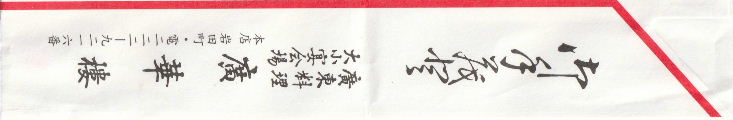 御手茂登
廣東料理
大小宴会場
廣華樓
本店 岩田町・電二二二ー九二一六番